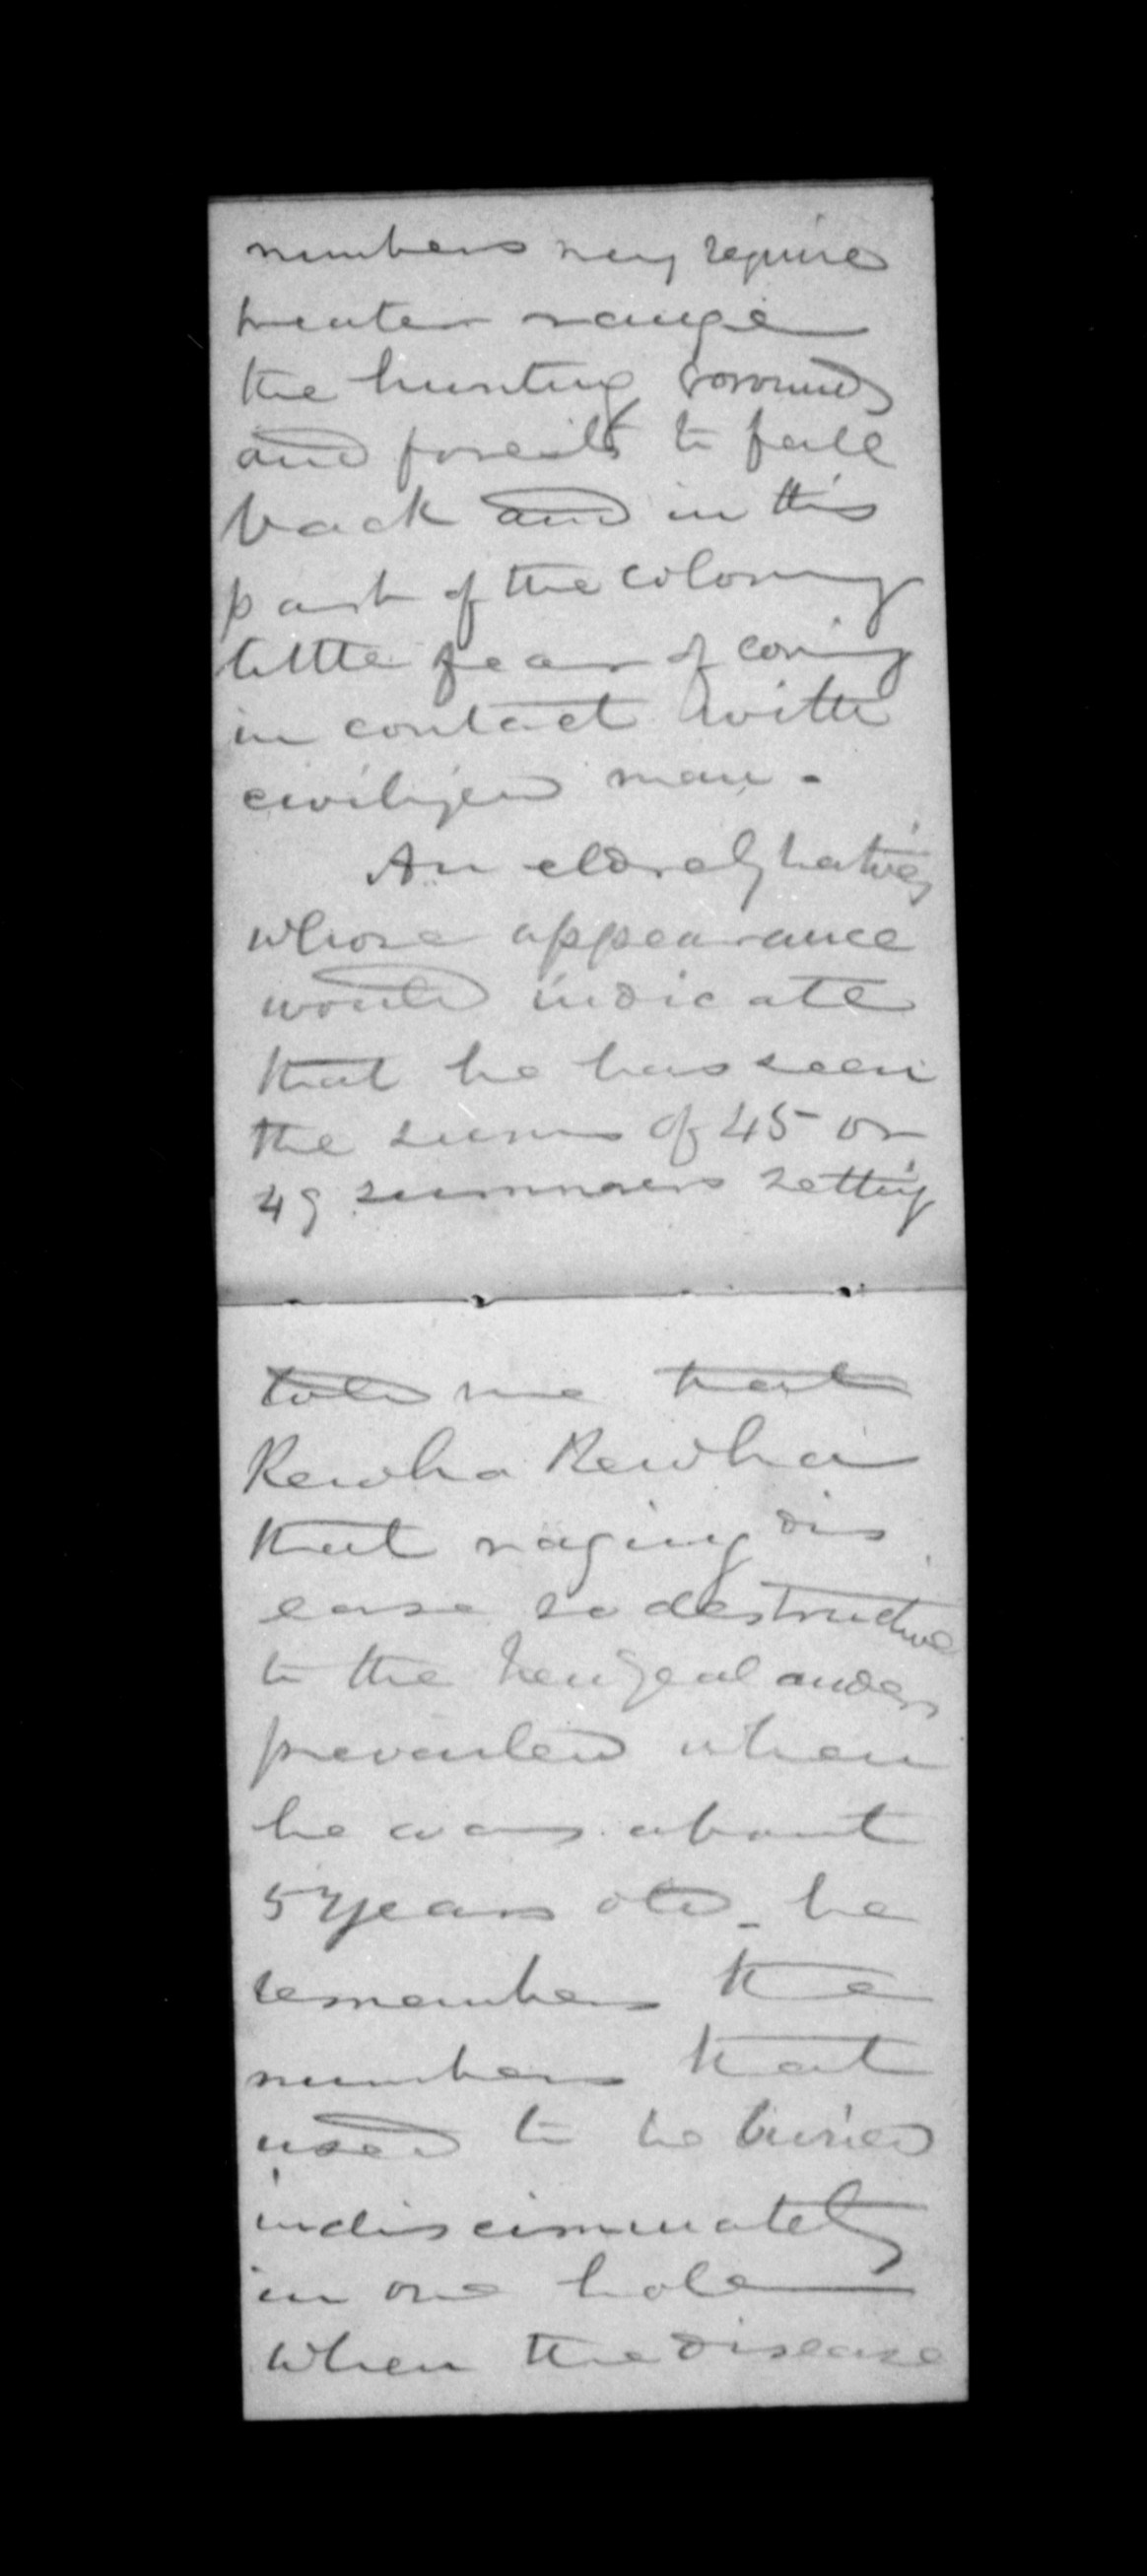 numbers may require
greater range
the hunting grounds
and forests to fall
back and in this
part of the colony
little fear of coming
in contact with
civilized man -
An elderly native,
whose appearance
would indicate
that he has seen
the suns of 45 or
49 summers setting
told me that
Rewha Rewha
that raging dis
ease so destructive
to the New Zealanders
prevailed when
he was about
5 years old - he
remembers the
numbers that
used to be buried
indiscriminately
in one hole
when the disease